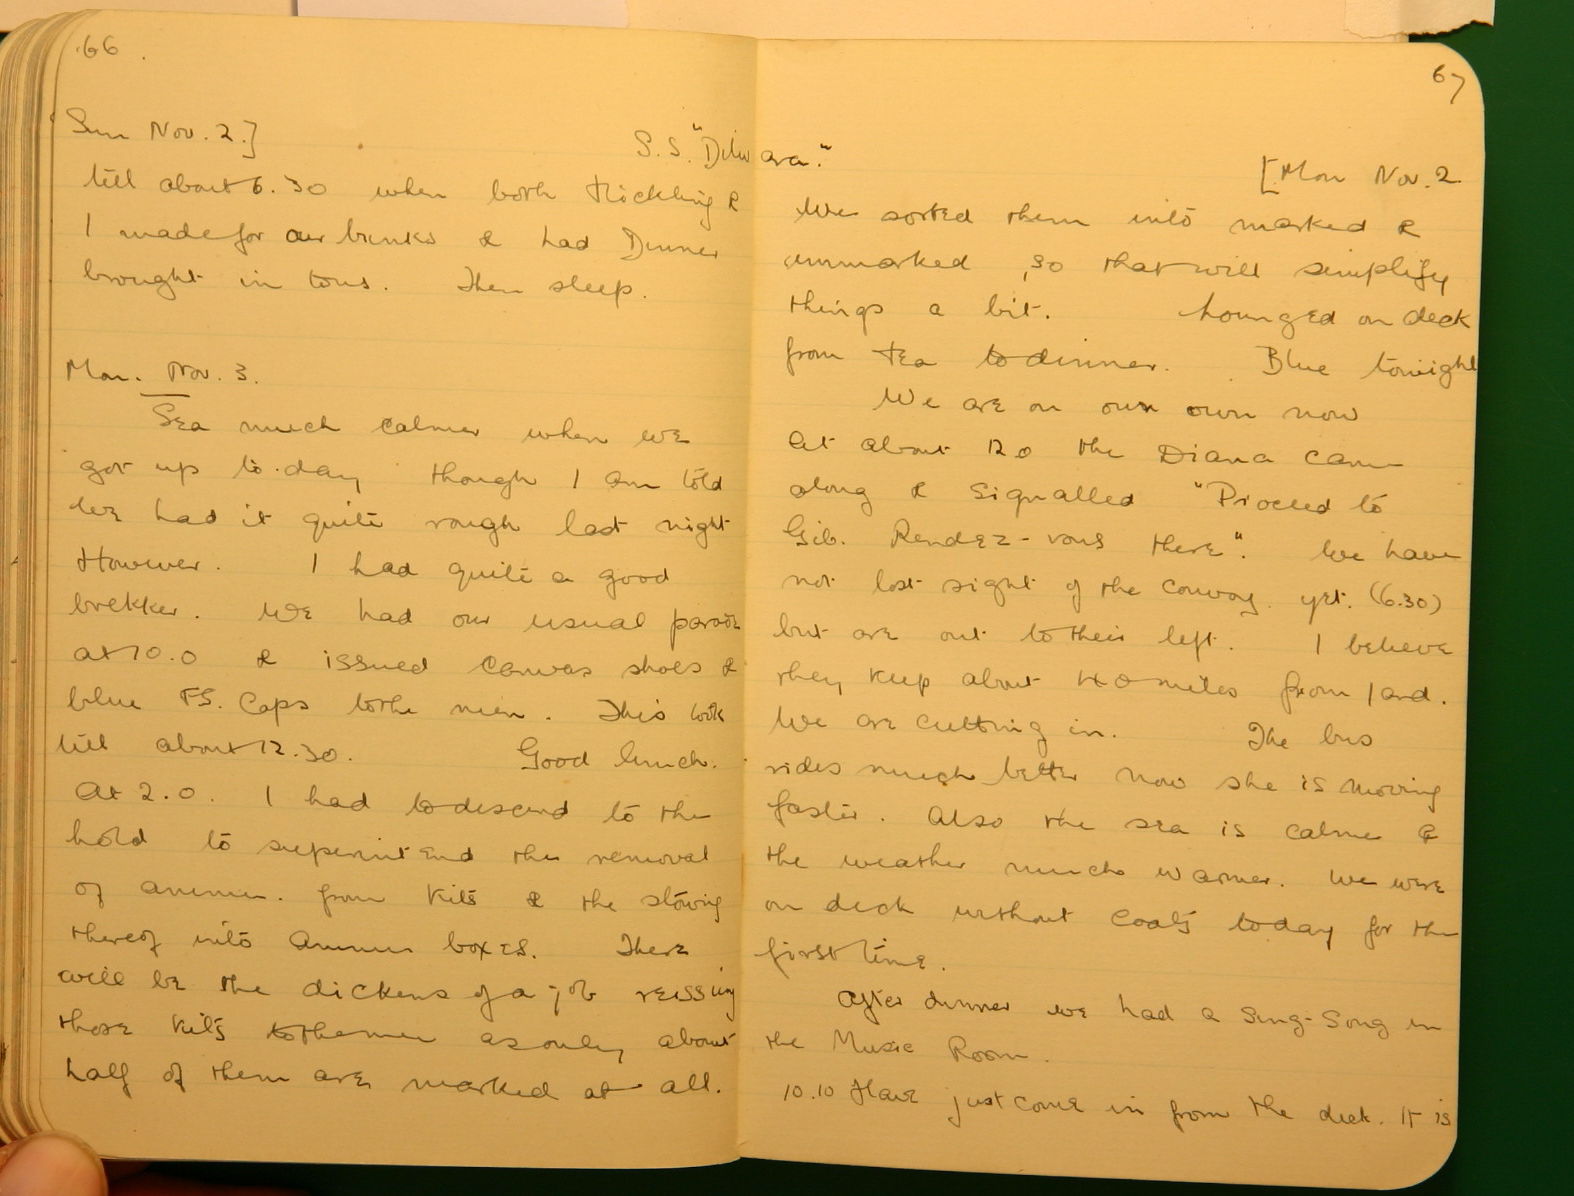 66.
Sun Nov. 2.]
S.S. "Dilwara."
till about 6.30 when both Hickling &
I made for our bunks & had Dinner
brought in to us. Then sleep.
Mon. Nov. 3.
Sea much calmer when we
got up to-day though I am told
we had it quite rough last night
However. I had quite a good
brekker. We had our usual parade
at 10.0 & issued canvas shoes &
blue F.S. Caps to the men. This took
till about 12.30. Good lunch.
At 2.0. I had to descend to the
hold to superintend the removal
of ammun. from kits & the stowing
thereof into Ammun boxes. There
will be the dickens of a job reissuing
those kits to the men as only about
half of them are marked at all.
67
[Mon Nov. 2
We sorted them into marked &
unmarked, so that will simplify
things a bit. Lounged on deck
from tea to dinner. Blue tonight
We are on our own now
At about 12.0 the Diana came
along & signalled "Proceed to
Gib. Rendez-vous there". We have
not lost sight of the convoy yet. (6.30)
but are out to their left. I believe
they keep about 40 miles from land.
We are cutting in. The bus
rides much better now she is moving
faster. Also the sea is calmer &
the weather much warmer. We were
on deck without coats today for the
first time.
After dinner we had a Sing-Song in
the Music Room.
10.10 Have just come in from the deck. It is